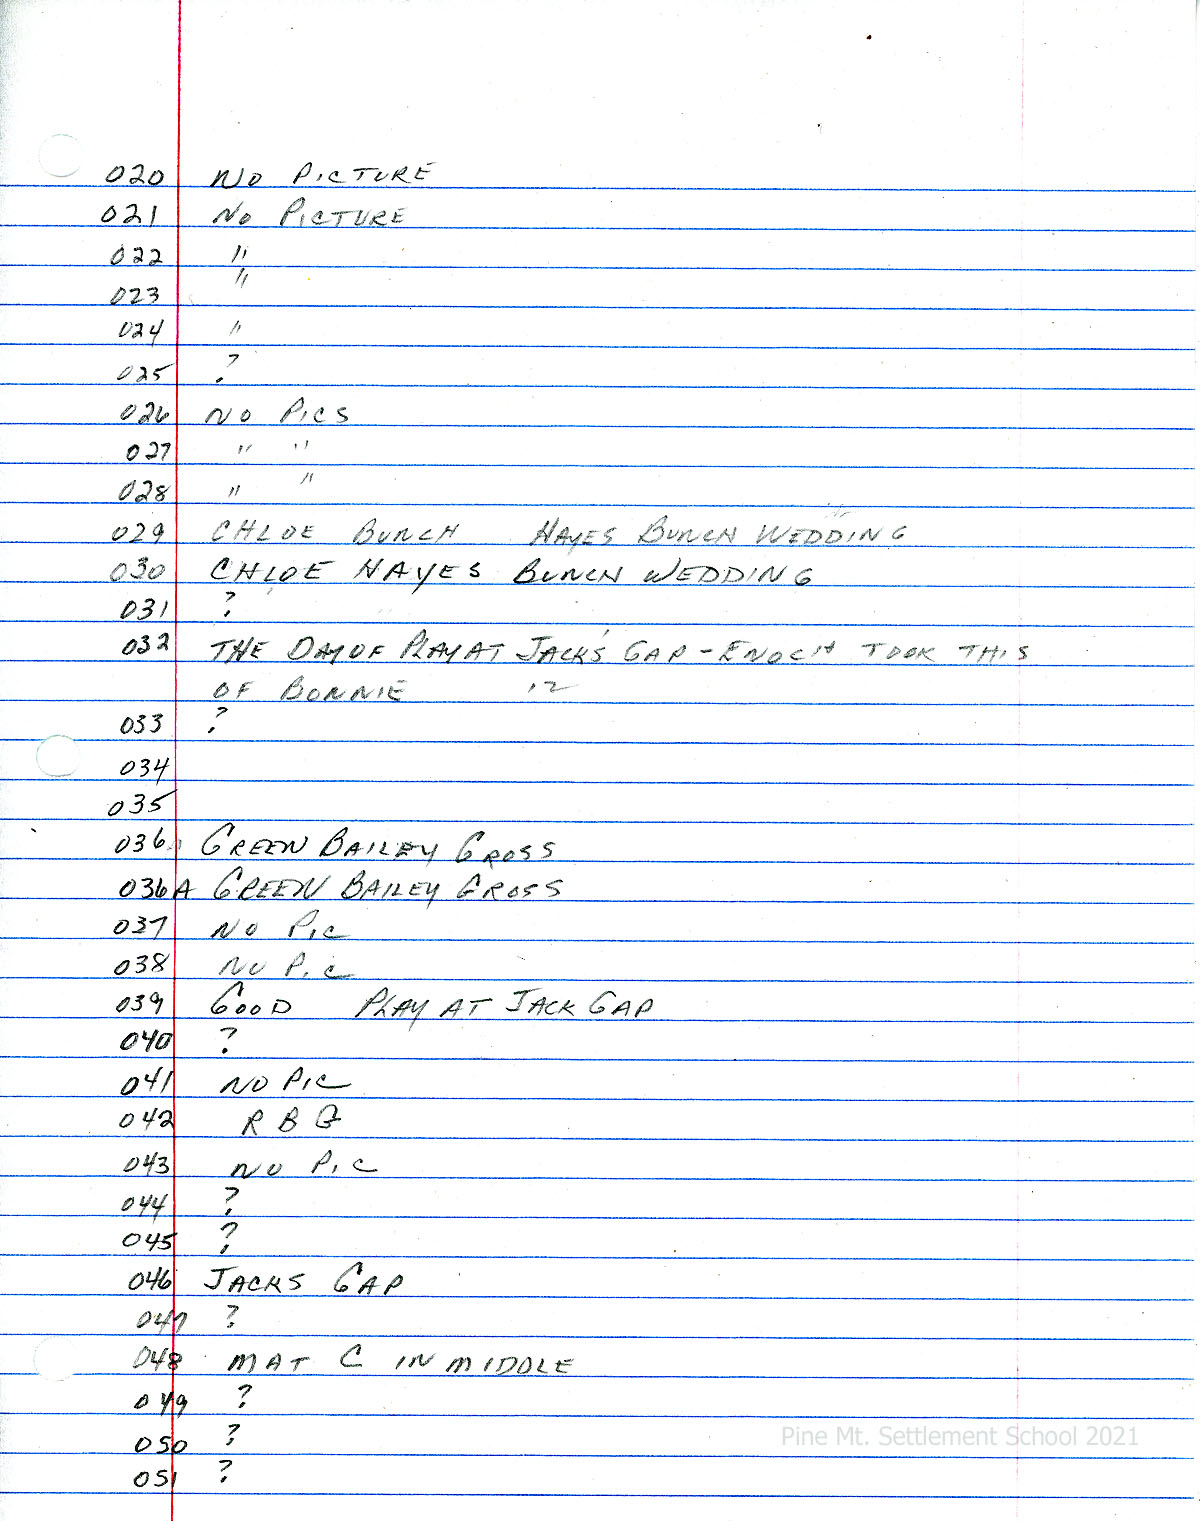 020 NO PICTURE
021 NO PICTURE
022 "
023 "
024 "
025 ?
026 NO PICS
027 " "
028 " "
029 CHLOE BUNCH HAYES BUNCH WEDDING
030 CHLOE HAYES BUNCH WEDDING
031 ?
032 THE DAY OF PLAY AT JACK'S GAP - ENOCH TOOK THIS
OF BONNIE
033 ?
034
035
036 GREEN BAILEY GROSS
036A GREEN BAILEY GROSS
037 NO PIC
038 NO PIC
039 GOOD PLAY AT JACK GAP
040 ?
041 NO PIC
042 R B G
043 NO PIC
044 ?
045 ?
046 JACKS GAP
047 ?
048 MAT C IN MIDDLE
049 ?
050 ?
Pine Mt. Settlement School 2021
051 ?